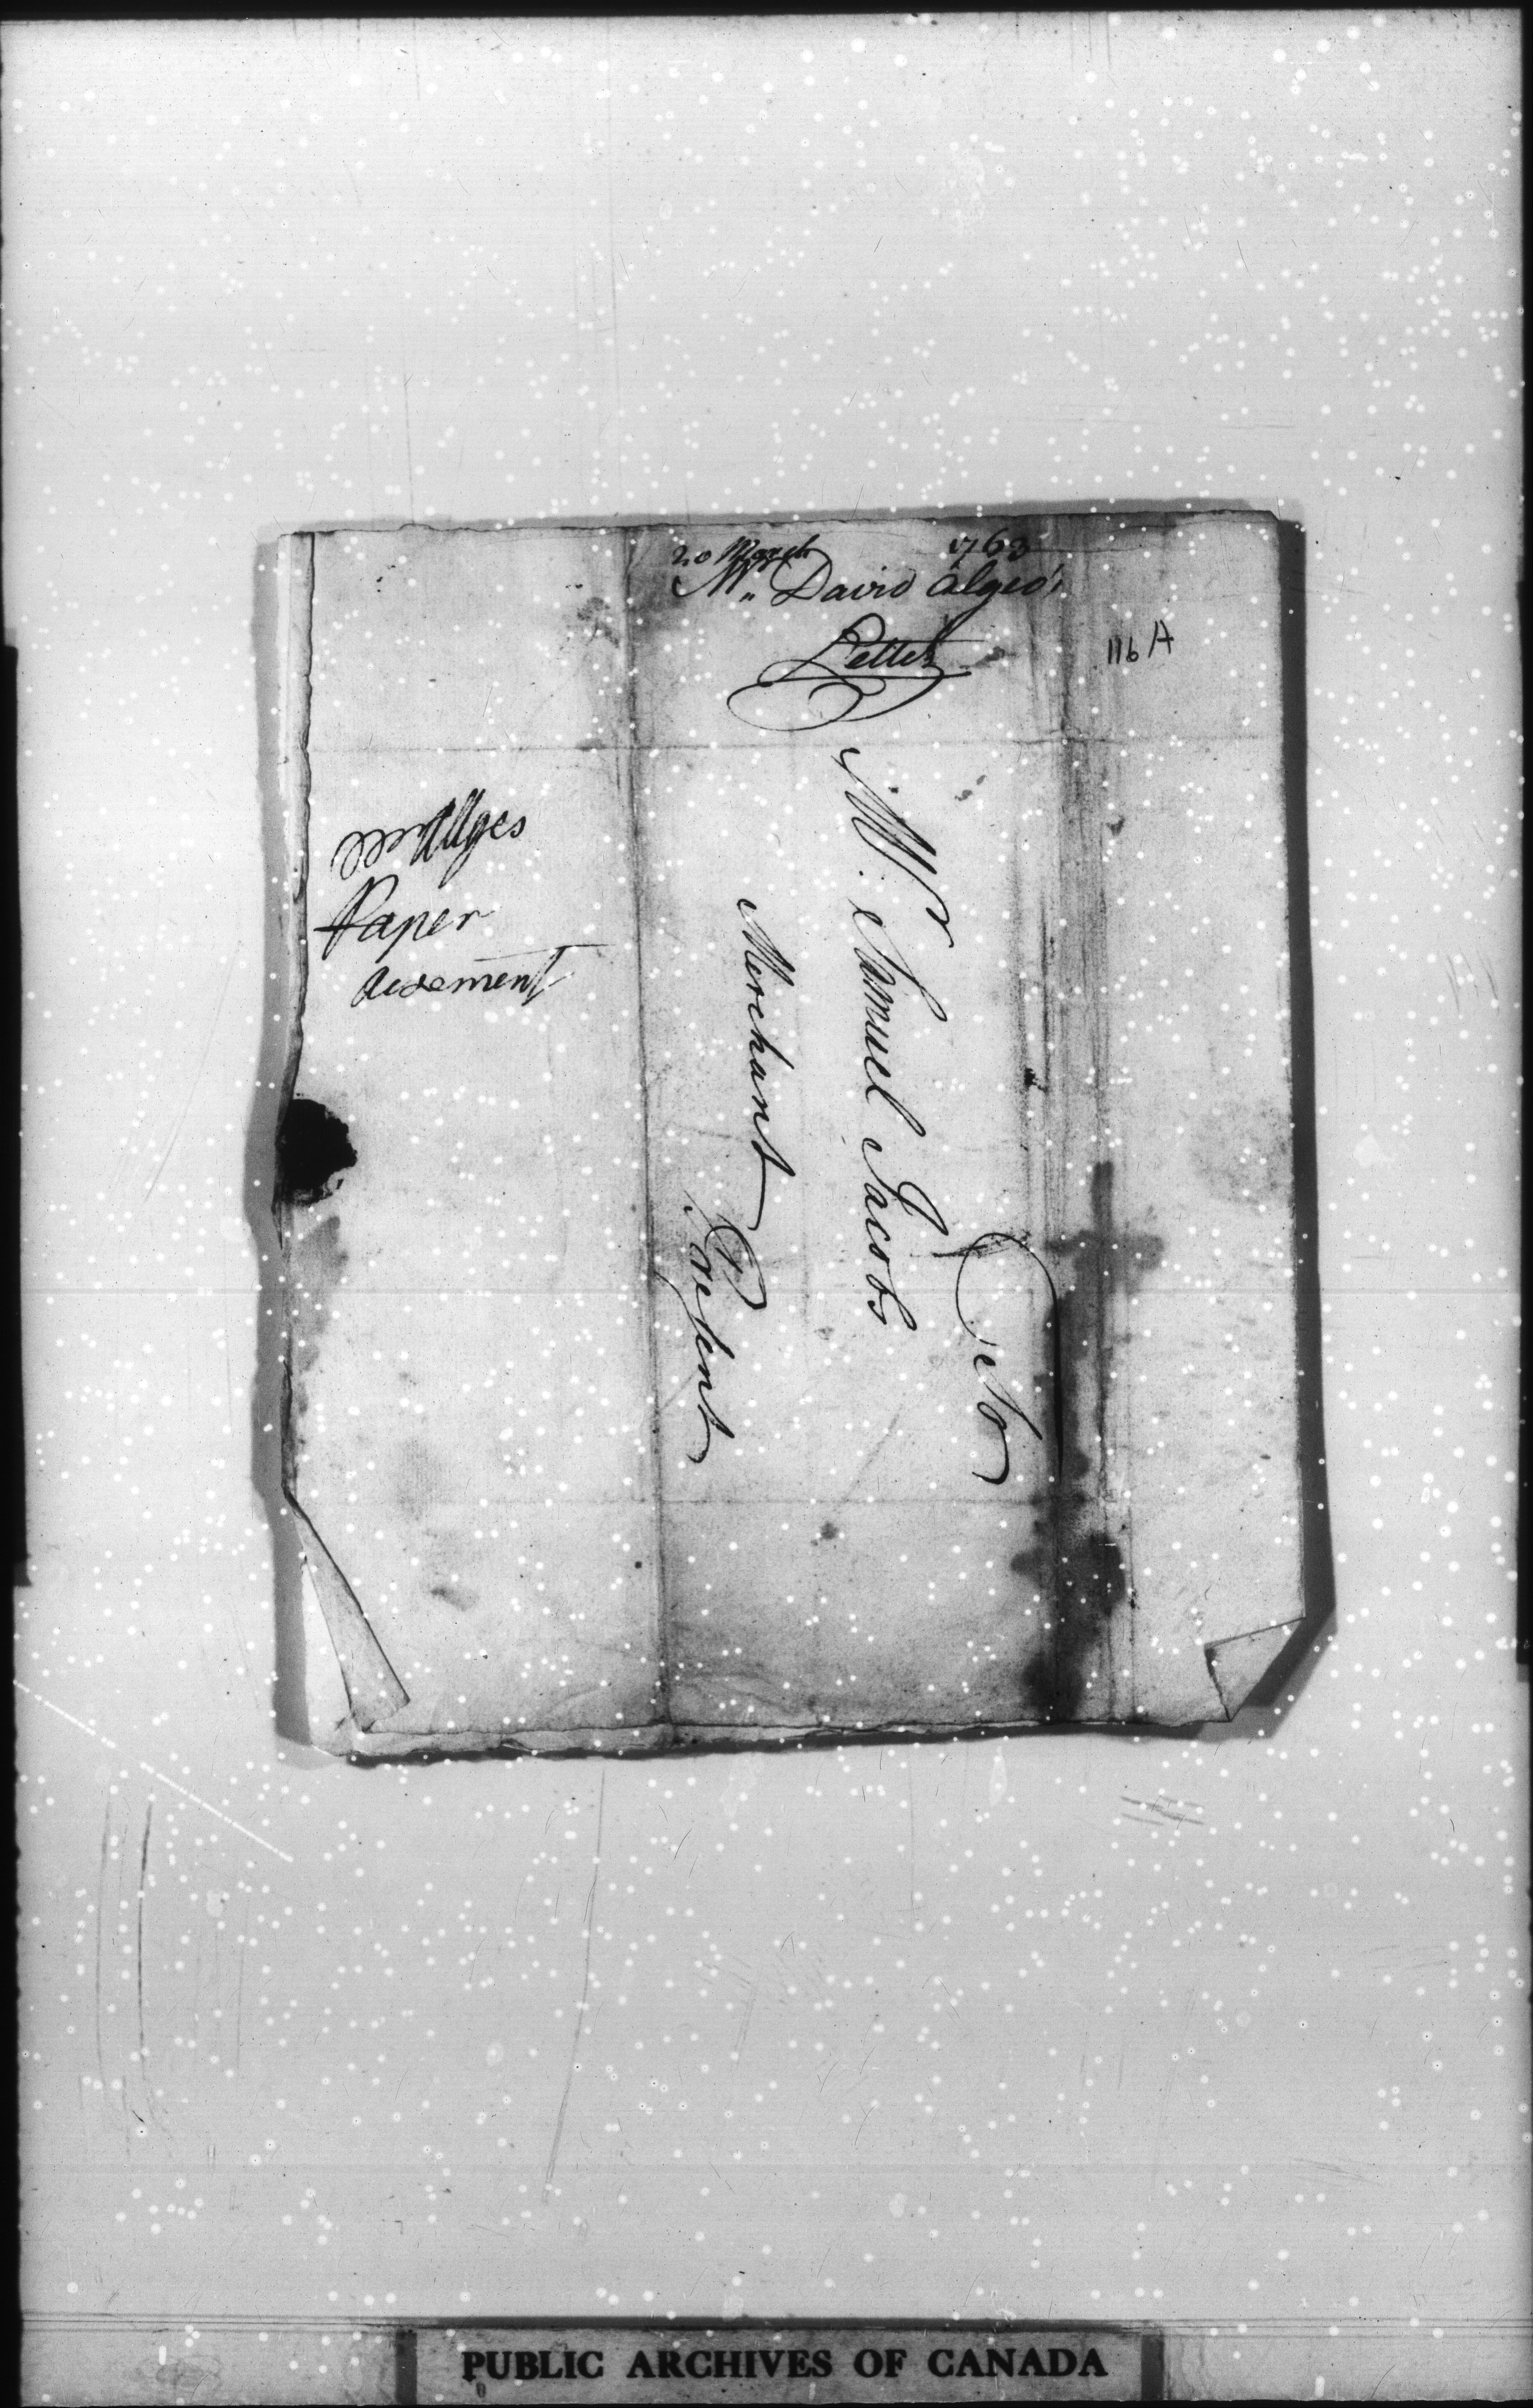 20 March 1763
Mr. David Algeo's
Letter
116 A
To
Mr. Samuel Jacobs
Merchant
Present
Paper
PUBLIC ARCHIVES OF CANADA